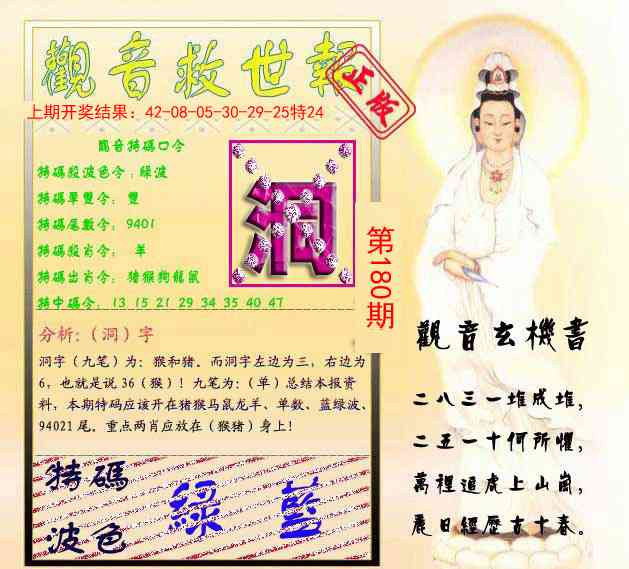 觀音救世報
正版
上期开奖结果：42-08-05-30-29-25特24
觀音特碼口令
特碼殺波色令：綠波
特碼單雙令： 雙
特碼尾數令： 9401
特碼殺肖令： 羊
特碼出肖令： 猪猴狗龍鼠
特中碼令： 13 15 21 29 34 35 40 47
洞
第180期
分析:（洞）字
洞字（九笔）为：猴和猪。而洞字左边为三，右边为
6，也就是说 36（猴）！九笔为：（单）总结本报资
料，本期特码应该开在猪猴马鼠龙羊、单数、蓝绿波、
94021 尾。重点两肖应放在（猴猪）身上！
特碼
波色
綠 藍
觀音玄機書
二八三一堆成堆，
二五一十何所懼，
萬裡追虎上山崗，
麗日經歷古十春。